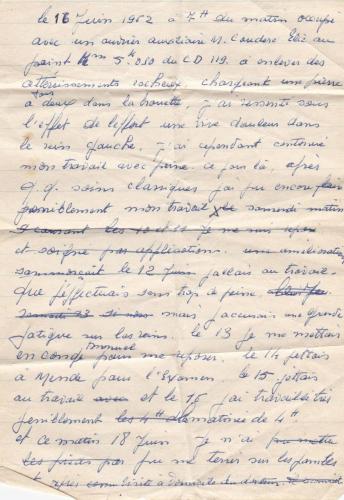 le 18 Juin 1962 à 7H du matin occupé
avec un ouvrier auxiliaire M. Couderc Eloi au
point Km 5.010 du CD 119. à enlever des
atterrissements rocheux, chargeant une pierre
à deux dans la brouette, j'ai ressenti sous
l'effet de l'effort une vive douleur dans
le rein gauche. J'ai cependant continué
mon travail avec peine. ce jour là, après
q.q. soins classiques j'ai pu encore
péniblement mon travail le samedi matin
Suivant les 10 et 11 Je me suis reposé
et soigné par applications. une amélioration
s'annonçait le 12 Juin j'allais au travail
que j'effectuais sans trop de peine
mais j'accusais une grande
fatigue sur les reins. le 13 je me mettais
en congé annuel pour me reposer. le 14 j'étais
à Mende pour l'Examen. le 15 j'étais
au travail avec et le 16 j'ai travaillé très
péniblement les 4H de matinée de 4H
et ce matin 18 Juin Je n'ai pu mettre
les pieds par pu me tenir sur les jambes
et après visite à domicile du docteur